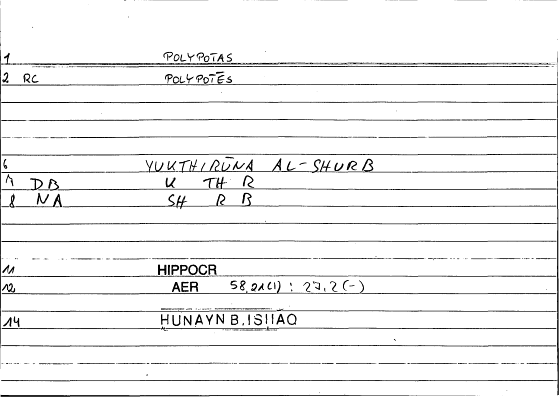 1 POLYPOTAS
2 RC POLYPOTĒS
6 YUKTHIRŪNA AL-SHURB
7 DB K TH R
8 NA SH R B
11 HIPPOCR
12 AER 58,21(1) : 27,2 (-)
14 HUNAYN B. ISḤAQ